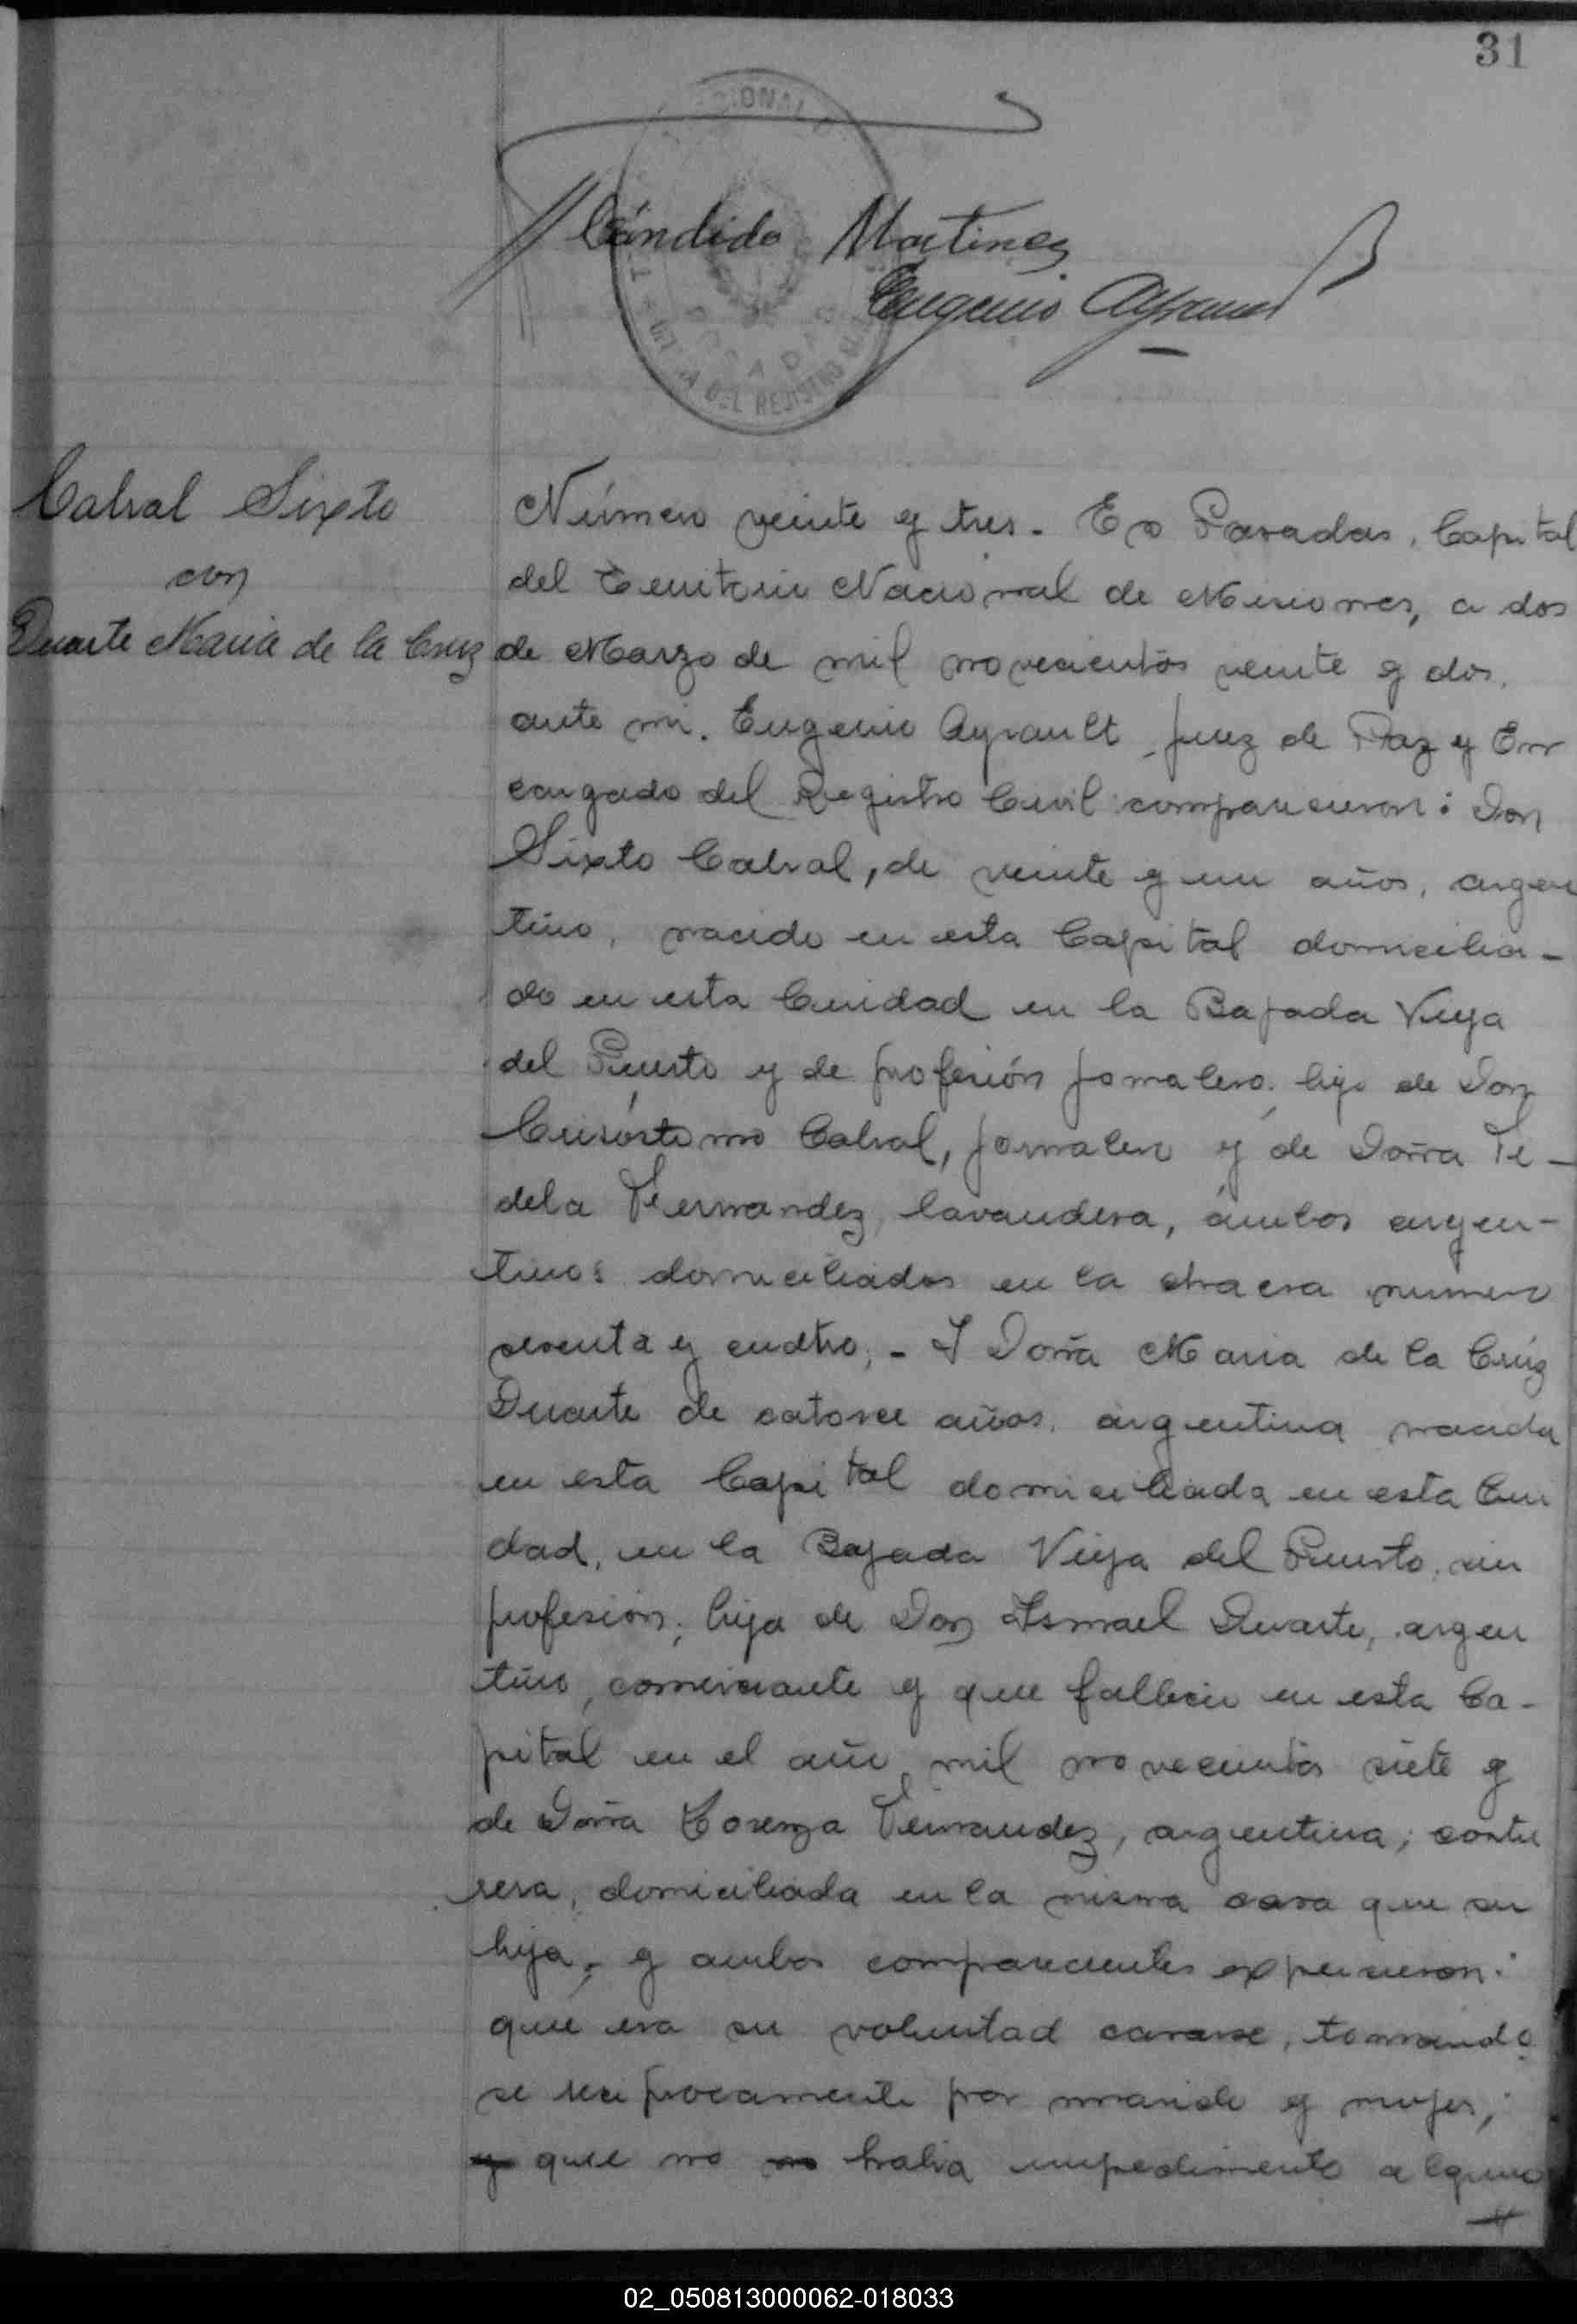 31
Cándido Martinez
Eugenio Ayrault
POSADAS
DEL REJISTRO
Cabral Sixto
con
Duarte Maria de la Cruz
Número veinte y tres. En Posadas, Capital
del Territorio Nacional de Misiones, a dos
de Marzo de mil novecientos veinte y dos,
ante mi. Eugenio Ayrault, Juez de Paz y En
cargado del Registro Civil comparecieron: Don
Sixto Cabral, de veinte y un años, argen
tino, nacido en esta Capital domicilia-
do en esta Ciudad en la Bajada Vieja
del Puerto y de profesión jornalero. hijo de Don
Crisóstomo Cabral, jornalero y de Doña
Fernandez, lavandera, ámbos argen-
tinos domiciliados en la chacra numero
sesenta y cuatro; - Y Doña Maria de la Crúz
Duarte de catorce años. argentina nacida
en esta Capital domiciliada en esta Ciu
dad, en la Bajada Vieja del Puerto, sin
profesión; hija de Don Ismael Duarte, argen
tino, comerciante y que falleció en esta Ca-
pital en el año mil novecientos siete y
de Doña Lorenza Fernandez, argentina; costu
rera, domiciliada en la misma casa que su
hija, y ambos comparecientes expusieron:
que era su voluntad casarse, tomando
se reciprocamente por marido y mujer;
y que no no habia impedimento alguno
02_050813000062-018033